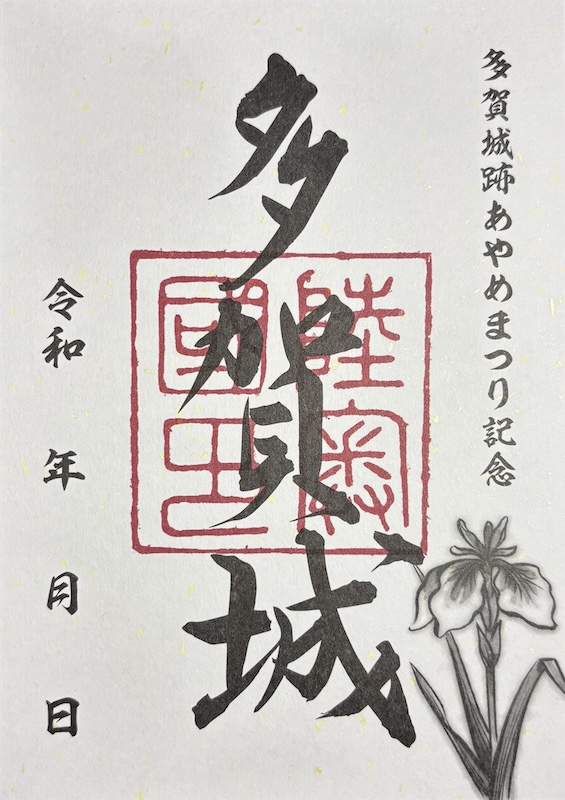 多賀城跡あやめまつり記念
多賀城
陸奥
國印
令和 年 月 日